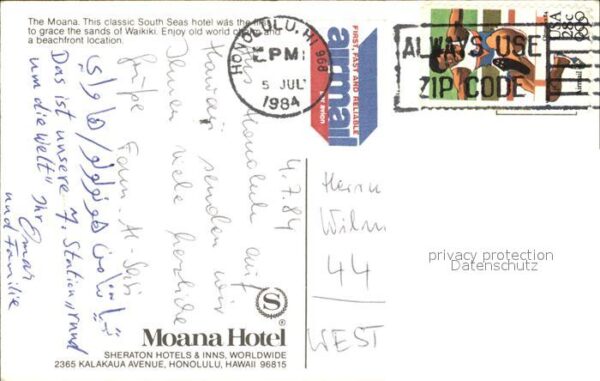 The Moana. This classic South Seas hotel was the
to grace the sands of Waikiki. Enjoy old world
a beachfront location.
HONOLULU, HI 968
PM
5 JUL
1984
airmail
FIRST, FAST AND RELIABLE
par avion
ALWAYS USE
ZIP CODE
USA
28c
4.7.84
Honolulu auf
Hawaii senden wir
Ihnen viele herzliche
Grüße
Fam. Al-
هونولولو / هاواي
Das ist unsere 7. Station "rund
um die Welt" Ihr
Omar
und Familie
Herrn
44
WEST
privacy protection
Datenschutz
S
Moana Hotel®
SHERATON HOTELS & INNS, WORLDWIDE
2365 KALAKAUA AVENUE, HONOLULU, HAWAII 96815